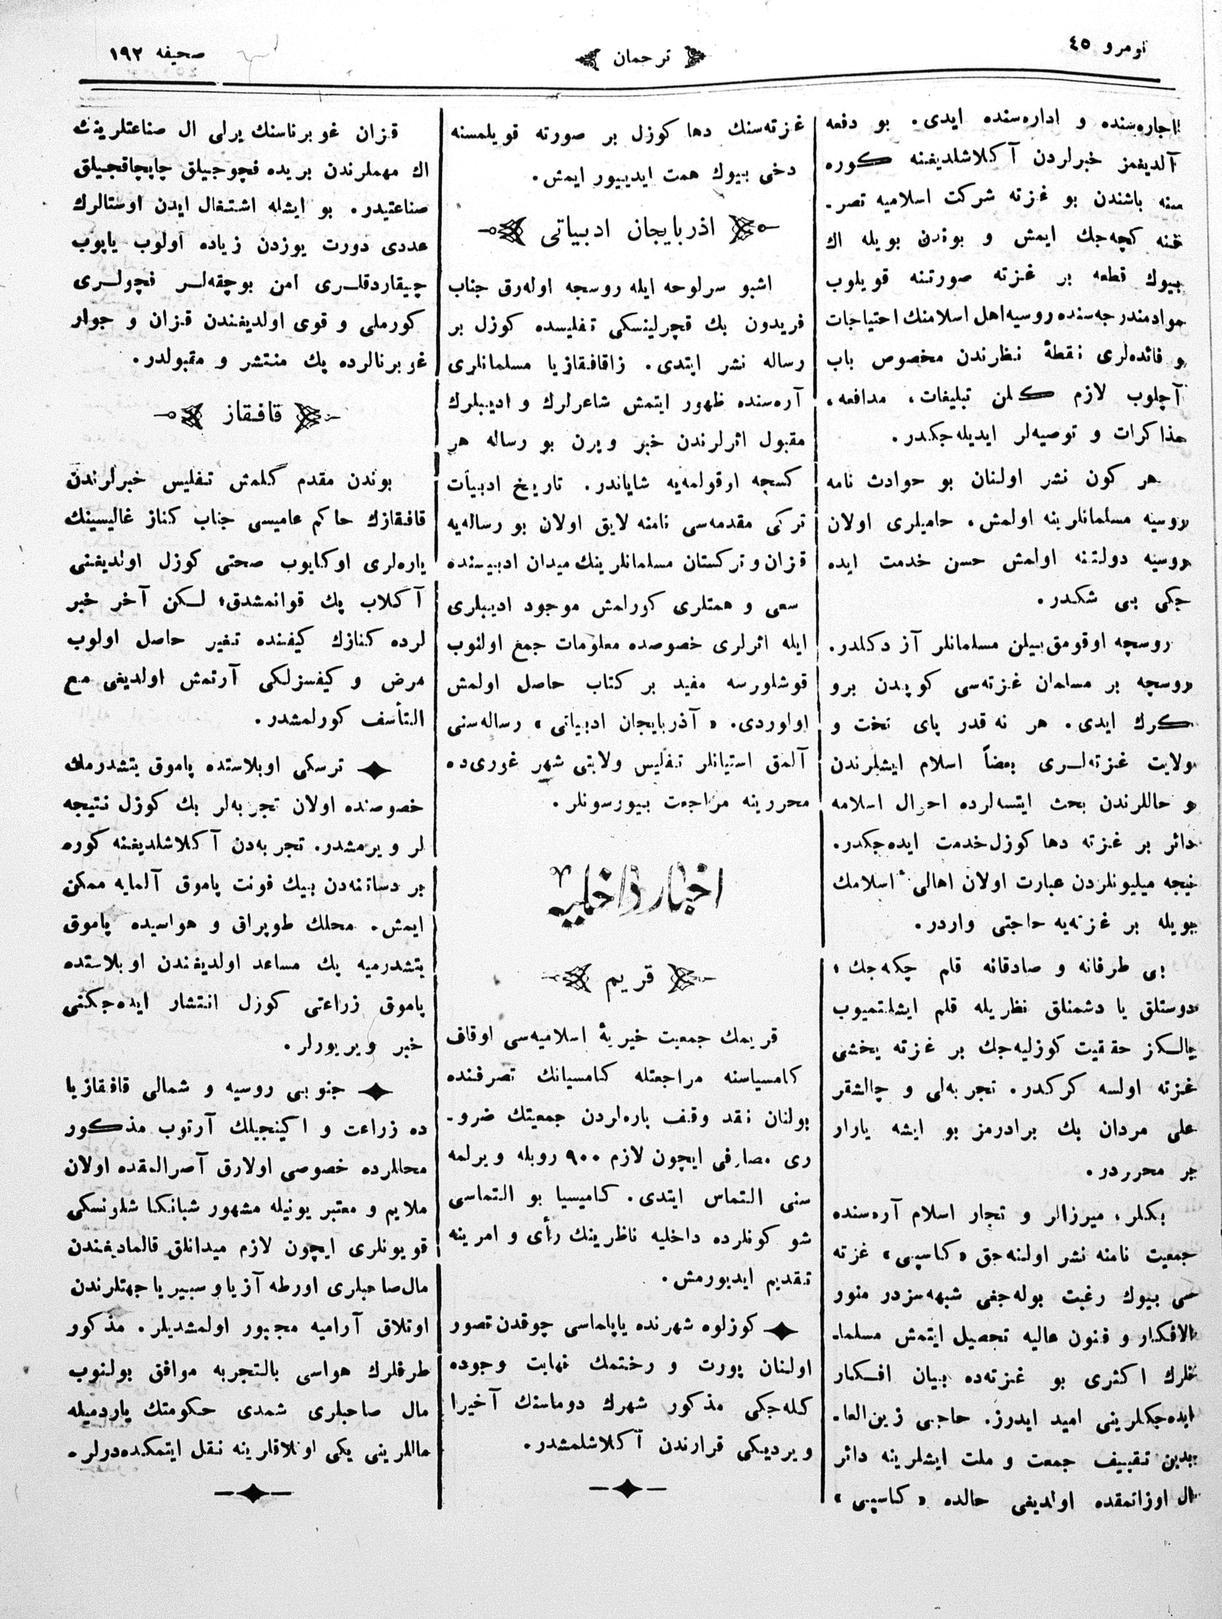 نومرو ٤٥
ترجمان
صحیفه ١٩٢
اجاره‌سنده و اداره‌سنده ایدی. بو دفعه
آلدیغمز خبرلردن آکلاشلدیغنه کوره
سنه باشندن بو غزته شرکت اسلامیه تصر-
فنه کچه‌جك ایمش و بوندن بویله اك
بیوك قطعه بر غزته صورتنه قویلوب
موادمندرجه‌سنده روسیه اهل اسلامنك احتیاجات
و فائده‌لری نقطهٔ نظرندن مخصوص باب
آچلوب لازم کلن تبلیغات، مدافعه،
مذاکرات و توصیه‌لر ایدیله‌جکدر.
هر کون نشر اولنان بو حوادث نامه
روسیه مسلمانلرینه اولمش. حامیلری اولان
روسیه دولتنه اولمش حسن خدمت ایده
جکی بی شکدر.
روسچه اوقومق بیلن مسلمانلر آز دکلدر.
روسچه بر مسلمان غزته‌سی کوپدن برو
کرك ایدی. هر نه قدر پای تخت و
ولایت غزته‌لری بعضاً اسلام ایشلرندن
و حاللرندن بحث ایتسه‌لرده احوال اسلامه
دائر بر غزته دها کوزل خدمت ایده‌جکدر.
نیجه میلیونلردن عبارت اولان اهالیٔ اسلامك
بویله بر غزته‌یه حاجتی واردر.
بی طرفانه و صادقانه قلم چکه‌جك؛
دوستلق یا دشمنلق نظریله قلم ایشلتمیوب
یالکز حقیقت کوزلیه‌جك بر غزته یخشی
غزته اولسه کرکدر. تجربه‌لی و چالشقر
علی مردان بك برادرمز بو ایشه یارار
بر محرردر.
بکلر، میرزالر و تجار اسلام آره‌سنده
جمعیت نامنه نشر اولنه‌جق «کاسپی» غزته
سی بیوك رغبت بوله‌جغی شبهه‌سزدر منور
الافکار و فنون عالیه تحصیل ایتمش مسلما-
نلرك اکثری بو غزته‌ده بیان افکار
ایده‌جکلرینی امید ایدرز. حاجی زین‌العا-
بدین تقییف جمعت و ملت ایشلرینه دائر
ال اوزاتمقده اولدیغی حالده «کاسپی»
غزته‌سنك دها کوزل بر صورته قویلمسنه
دخی بیوك همت ایدییور ایمش.
اذربایجان ادبیاتی
اشبو سرلوحه ایله روسجه اوله‌رق جناب
فریدون بك قچرلینسکی تفلیسده کوزل بر
رساله نشر ایتدی. زاقافقازیا مسلمانلری
آره‌سنده ظهور ایتمش شاعرلرك و ادیبلرك
مقبول اثرلرندن خبر ویرن بو رساله هر
کسچه اوقولمه‌یه شایاندر. تاریخ ادبیات
ترکی مقدمه‌سی نامنه لایق اولان بو رساله‌یه
قزان و ترکستان مسلمانلرینك میدان ادبیسنده
سعی و همتلری کورلمش موجود ادیبلری
ایله اثرلری خصوصده معلومات جمع اولنوب
قوشلورسه مفید بر کتاب حاصل اولمش
اولوردی. «آذربایجان ادبیاتی» رساله‌سنی
آلمق استیانلر تفلیس ولایتی شهر غوری‌ده
محررینه مراجعت بیورسونلر.
اخبار داخلیه
قریم
قریمك جمعیت خیریهٔ اسلامیه‌سی اوقاف
کامسیاسنه مراجعتله کامسیانك تصرفنده
بولنان نقد وقف پاره‌لردن جمعیتك ضرو-
ری مصارفی ایچون لازم ٩٠٠ روبله ویرلمه
سنی التماس ایتدی. کامیسیا بو التماسی
شو کونلرده داخلیه ناظرینك رأی و امرینه
تقدیم ایدیورمش.
کوزلوه شهرنده یاپلماسی چوقدن تصور
اولنان پورت و رختمك نهایت وجوده
کله‌جکی مذکور شهرك دوماسنك آخیرا
ویردیکی قرارندن آکلاشلمشدر.
قزان غوبرناسنك یرلی ال صناعتلرینك
اك مهملرندن بریده فچوجیلق چاپچاقجیلق
صناعتیدر. بو ایشله اشتغال ایدن اوستالرك
عددی دورت یوزدن زیاده اولوب یاپوب
چیقاردقلری امن بوچقه‌لر فچولری
کورملی و قوی اولدیغندن قزان و جوار
غوبرنالرده پك منتشر و مقبولدر.
قافقاز
بوندن مقدم کلمش تفلیس خبرلرندن
قافقازك حاکم عامیسی جناب کناز غالیسینك
یاره‌لری اوکایوب صحتی کوزل اولدیغنی
آکلاب پك قوانمشدق؛ لکن آخر خبر
لرده کنازك کیفنده تغیر حاصل اولوب
مرض و کیفسزلکی آرتمش اولدیغی مع
التأسف کورلمشدر.
ترسکی اوبلاستده پاموق یتشدرمك
خصوصنده اولان تجربه‌لر بك کوزل نتیجه
لر ویرمشدر. تجربه‌دن آکلاشلدیغنه کوره
بر دساتنه‌دن بیك فونت پاموق آلمایه ممکن
ایمش. محلك طوپراق و هواسیده پاموق
یتشدرمیه پك مساعد اولدیغندن اوبلاستده
پاموق زراعتی کوزل انتشار ایده‌جکنی
خبر ویریورلر.
جنوبی روسیه و شمالی قافقازیا
ده زراعت و اکینجیلك آرتوب مذکور
محاللرده خصوصی اولارق آصرالمقده اولان
ملایم و معتبر یونیله مشهور شبانکا شلونسکی
قویونلری ایچون لازم میدانلق قالمادیغندن
مال صاحبلری اورطه آزیا و سبیریا جهتلرندن
اوتلاق آرامیه مجبور اولمشدیلر. مذکور
طرفلرك هواسی بالتجربه موافق بولنوب
مال صاحبلری شمدی حکومتك یاردمیله
ماللرینی یکی اوتلاقلرینه نقل ایتمکده‌درلر.